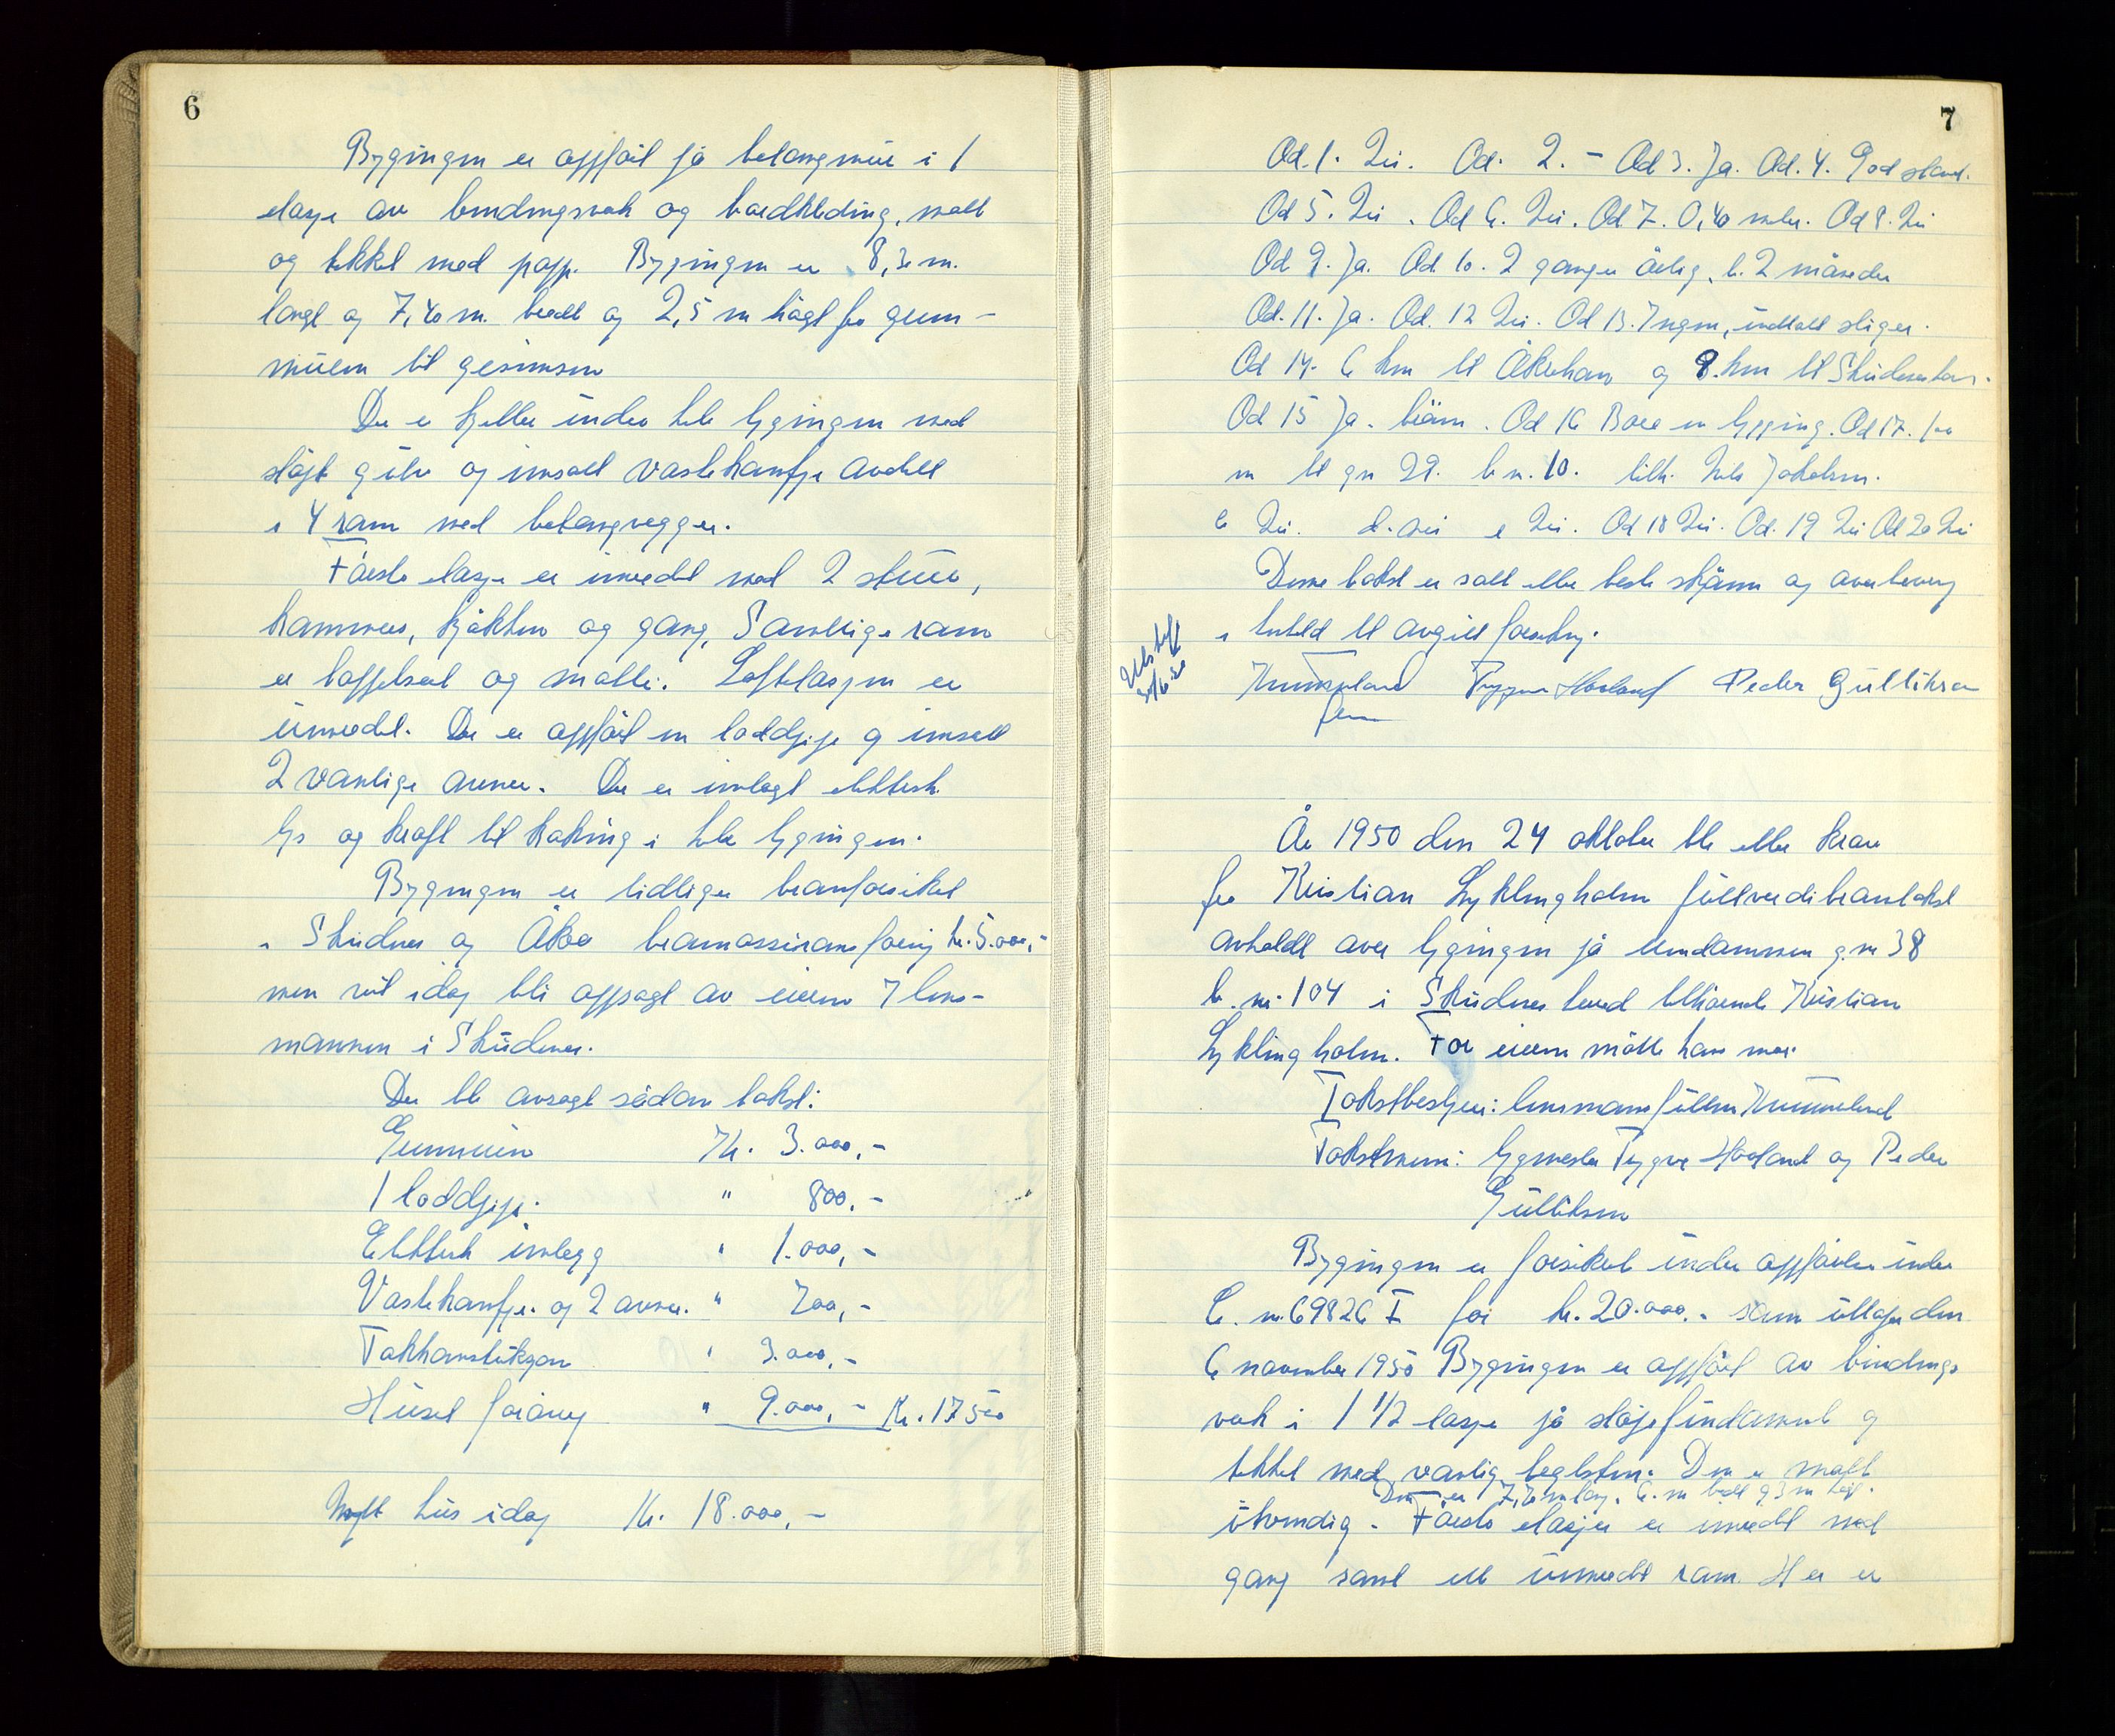 6
Bygingen er oppført på betongmur i 1
etasje av bindingsverk og bordkleding, malt
og tekket med papp. Bygingen er 8,30 m.
langt og 7,40 m. bredt og 2,5 m høgt fra grunn-
muren til gesimsen
Der er kjeller under hele bygingen med
støpt gulv og innsatt vaskekantfje avdelt
i 4 rom med betongvegger.
Første etasje er inredet med 2 stuer,
kammers, kjøkken og gang. Samtlige rom
er og malte. Loftetasjen er
uinredet. Der er oppført en loddpipe og innsatt
2 vanlige ovner. Der er innlagt elektrisk
lys og kraft til koking i hele bygingen.
Bygingen er tidligere branforsikret
i Skudnes og Åkra branassuransforeing kr. 5.000,-
men vil idag bli oppsagt av eieren lens-
mannen i Skudenes.
Der ble avsagt sådan takst:
Grunmuren Kr. 3.000,-
1 loddpipe. " 800,-
Elektrisk innlegg " 1.000,-
Vaskekantfje. og 2 ovner. " 700,-
Takkonstuksjon " 3.000,-
Huset forøvrig " 9.000,- Kr. 17500
Nytt hus idag Kr. 18.000,-
7
Ad. 1. Nei. Ad. 2. - Ad 3. Ja. Ad. 4. God stand.
Ad 5. Nei. Ad 6. Nei. Ad 7. 0,40 meter. Ad 8. Nei
Ad 9. Ja. Ad. 10. 2 ganger årlig, b. 2 måneder
Ad. 11. Ja. Ad. 12 Nei. Ad 13. Ingen, undtatt stiger.
Ad 14. 6 km til Åkrehavn og 8 km til Skudeneshavn.
Ad 15 Ja. brønn. Ad 16 Bare en bygging. Ad 17. 100
m til gn 29. b n. 10. tilh. Nils Jakobsen.
c Nei. d. nei e Nei. Ad 18 Nei. Ad. 19 Nei Ad 20 Nei
Denne takst er satt etter beste skjønn og overbevisning
i henhold til avgitt forsikring.
Utskrift
30/6.50
Kummeland Trygve Hovland Peder Gulliksen
År 1950 den 24 oktober ble etter krav
fra Kristian Lyklingholm fullverdibrantakst
avholdt over bygingen på eiendommen g.nr 38
b. nr. 104 i Skudenes herred tilhørende Kristian
Lyklingholm. For eieren møtte han
Takstbestyrer: lensmansfullm Kummeland
Takstmenn: bygmester Trygve Hovland og Peder
Gulliksen
Bygingen er forsikret under oppførelse under
C. nr. 69826 I for kr. 20.000.- som utløper den
6 november 1950 Bygingen er oppført av bindings
verk i 1 1/2 etasje på støpt fundament og
tekket med vanlig teglsten. Den er malt
Den er 7,70 m lang, 6. m bred og 3 m høg.
utvendig. Første etasjen er inredet med
gang samt ett uinredet rom. Her er